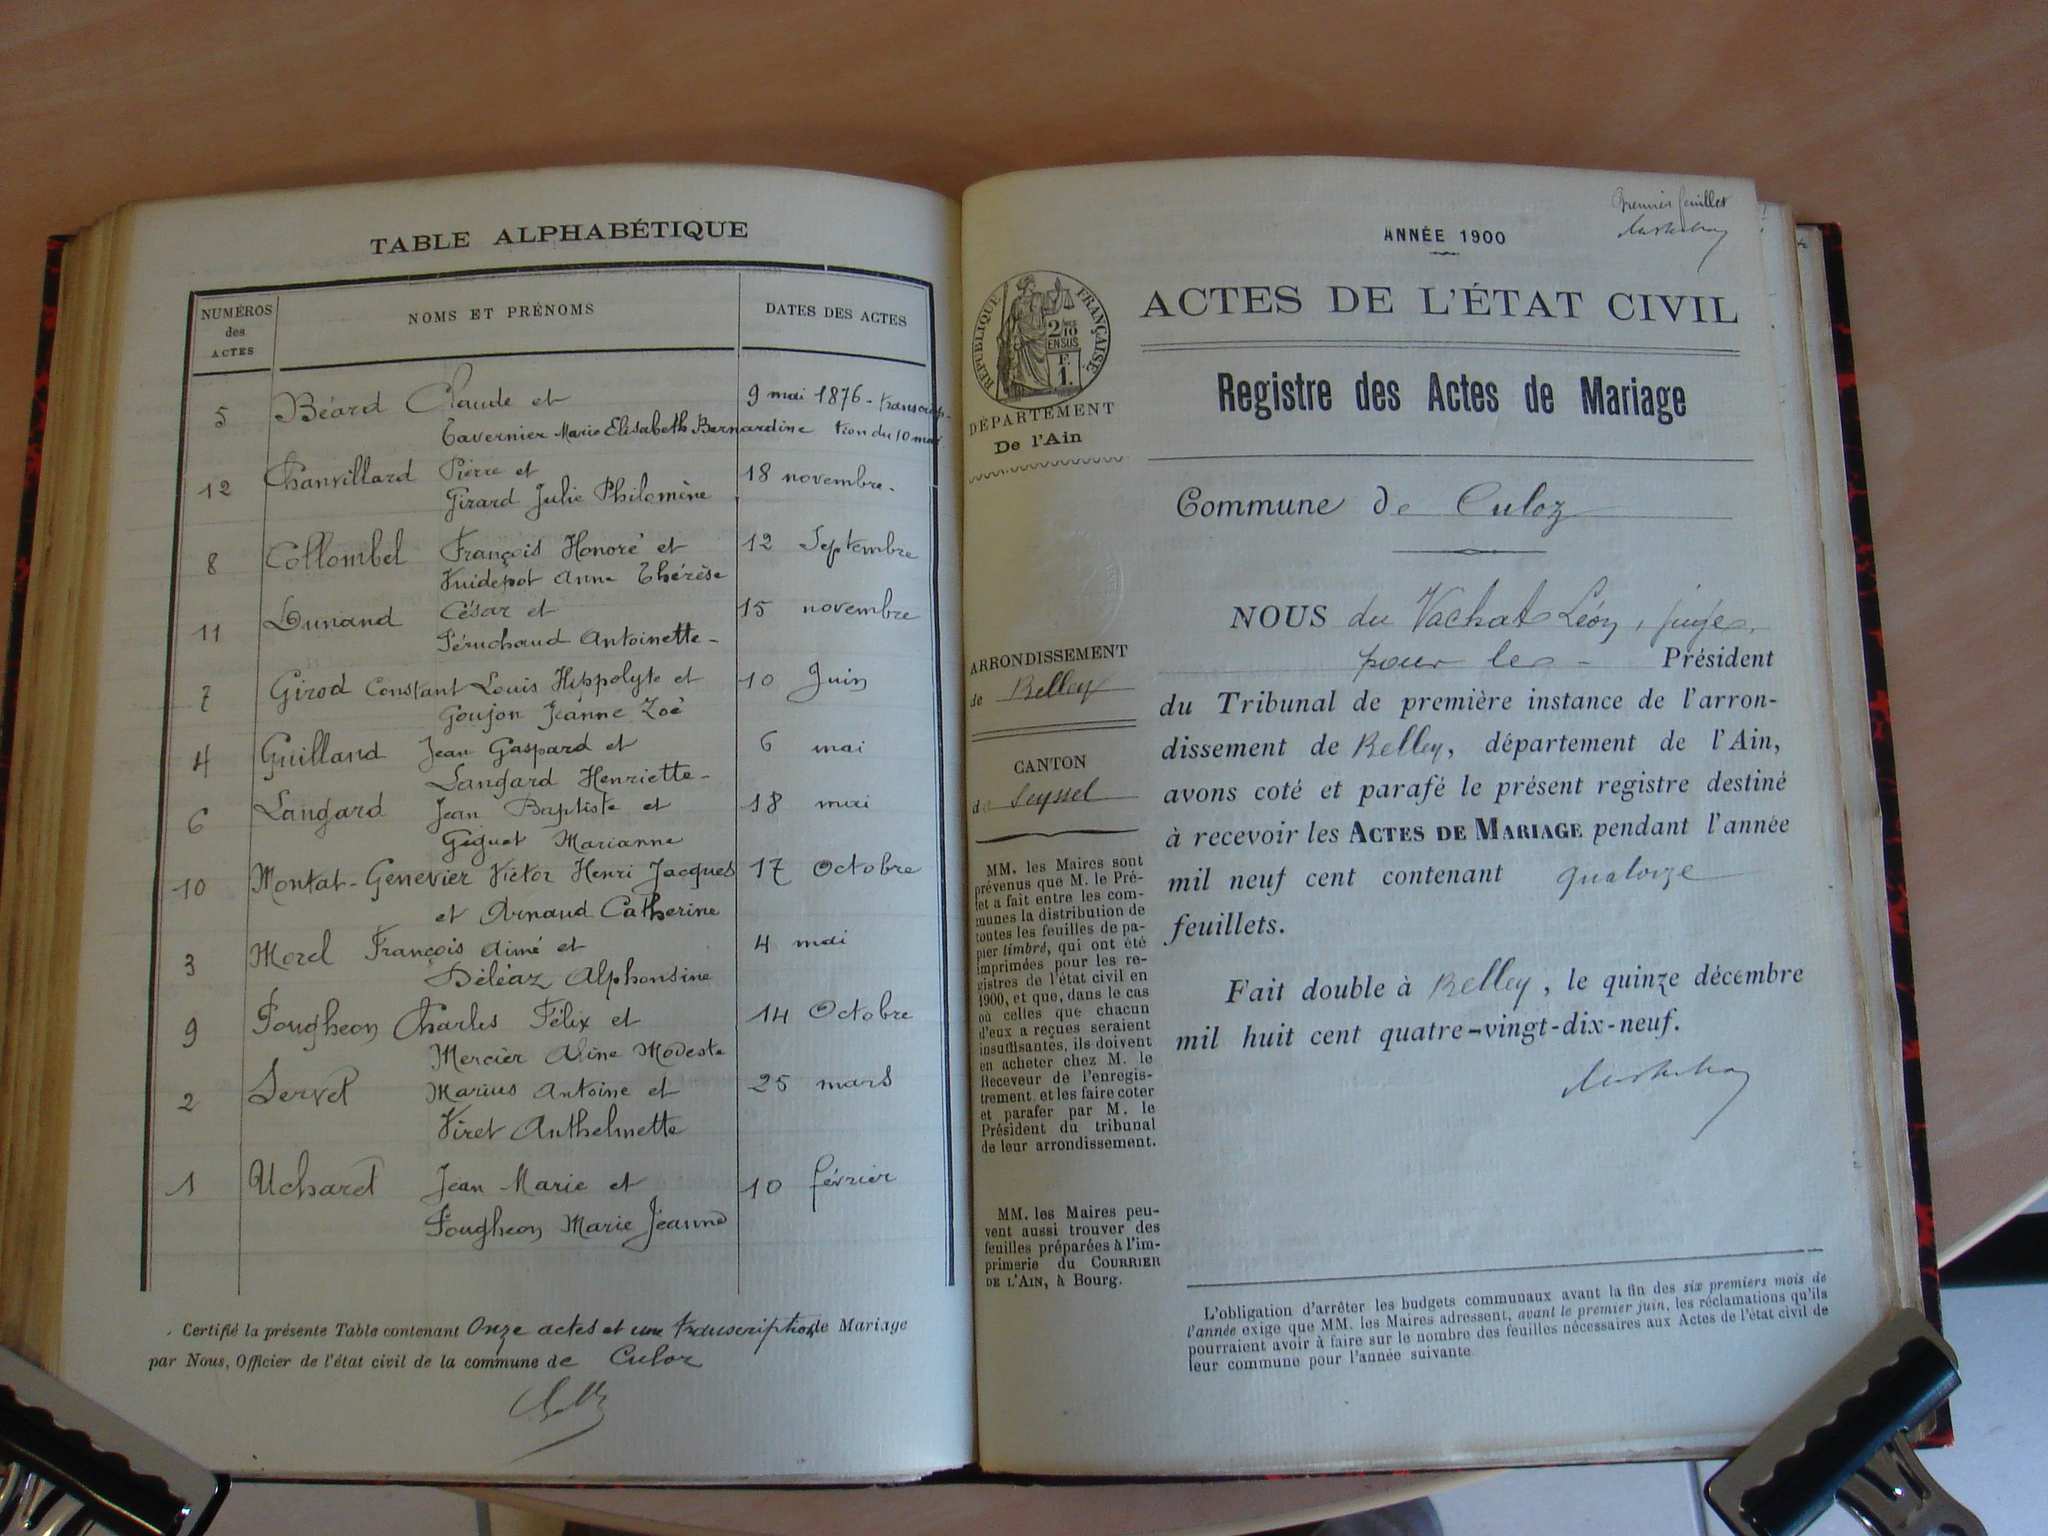 TABLE ALPHABÉTIQUE
NUMÉROS
des
ACTES
NOMS ET PRÉNOMS
DATES DES ACTES
5 Béard Claude et 9 mai 1876 - transcrip-
Tavernier Marie Elisabeth Bernardine tion du 10 mai
12 Chanvillard Pierre et 18 novembre -
Girard Julie Philomène
8 Collombel François Honoré et 12 Septembre
Vuidepot Anne Thérèse
11 Dunand César et 15 novembre
Péruchaud Antoinette -
7 Girod Constant Louis Hippolyte et 10 Juin
Goujon Jeanne Zoé
4 Guilland Jean Gaspard et 6 mai
Langard Henriette -
6 Langard Jean Baptiste et 18 mai
Giguet Marianne
10 Montat-Genevier Victor Henri Jacques 17 Octobre
et Arnaud Catherine
3 Morel François Aimé et 4 mai
Déléaz Alphonsine
9 Pougheon Charles Félix et 14 Octobre
Mercier Aline Modeste
2 Servet Marius Antoine et 25 mars
Viret Anthelmette
1 Uchard Jean Marie et 10 février
Pougheon Marie Jeanne
Certifié la présente Table contenant Onze actes et une transcription de Mariage
par Nous, Officier de l'état civil de la commune de Culoz
Premier feuillet
ANNÉE 1900
ACTES DE L'ÉTAT CIVIL
RÉPUBLIQUE FRANÇAISE
2/10
EN SUS
F.
1.
Registre des Actes de Mariage
DÉPARTEMENT
De l'Ain
Commune de Culoz
ARRONDISSEMENT
de Belley
CANTON
de Seyssel
MM. les Maires sont
prévenus que M. le Pré-
fet a fait entre les com-
munes la distribution de
toutes les feuilles de pa-
pier timbré, qui ont été
imprimées pour les re-
gistres de l'état civil en
1900, et que, dans le cas
où celles que chacun
d'eux a reçues seraient
insuffisantes, ils doivent
en acheter chez M. le
Receveur de l'enregis-
trement, et les faire coter
et parafer par M. le
Président du tribunal
de leur arrondissement.
MM. les Maires peu-
vent aussi trouver des
feuilles préparées à l'im-
primerie du COURRIER
DE L'AIN, à Bourg.
NOUS du Vachat Léon, juge,
pour le - Président
du Tribunal de première instance de l'arron-
dissement de Belley, département de l'Ain,
avons coté et parafé le présent registre destiné
à recevoir les ACTES DE MARIAGE pendant l'année
mil neuf cent contenant quatorze
feuillets.
Fait double à Belley, le quinze décembre
mil huit cent quatre-vingt-dix-neuf.
L'obligation d'arrêter les budgets communaux avant la fin des six premiers mois de
l'année exige que MM. les Maires adressent, avant le premier juin, les réclamations qu'ils
pourraient avoir à faire sur le nombre des feuilles nécessaires aux Actes de l'état civil de
leur commune pour l'année suivante.